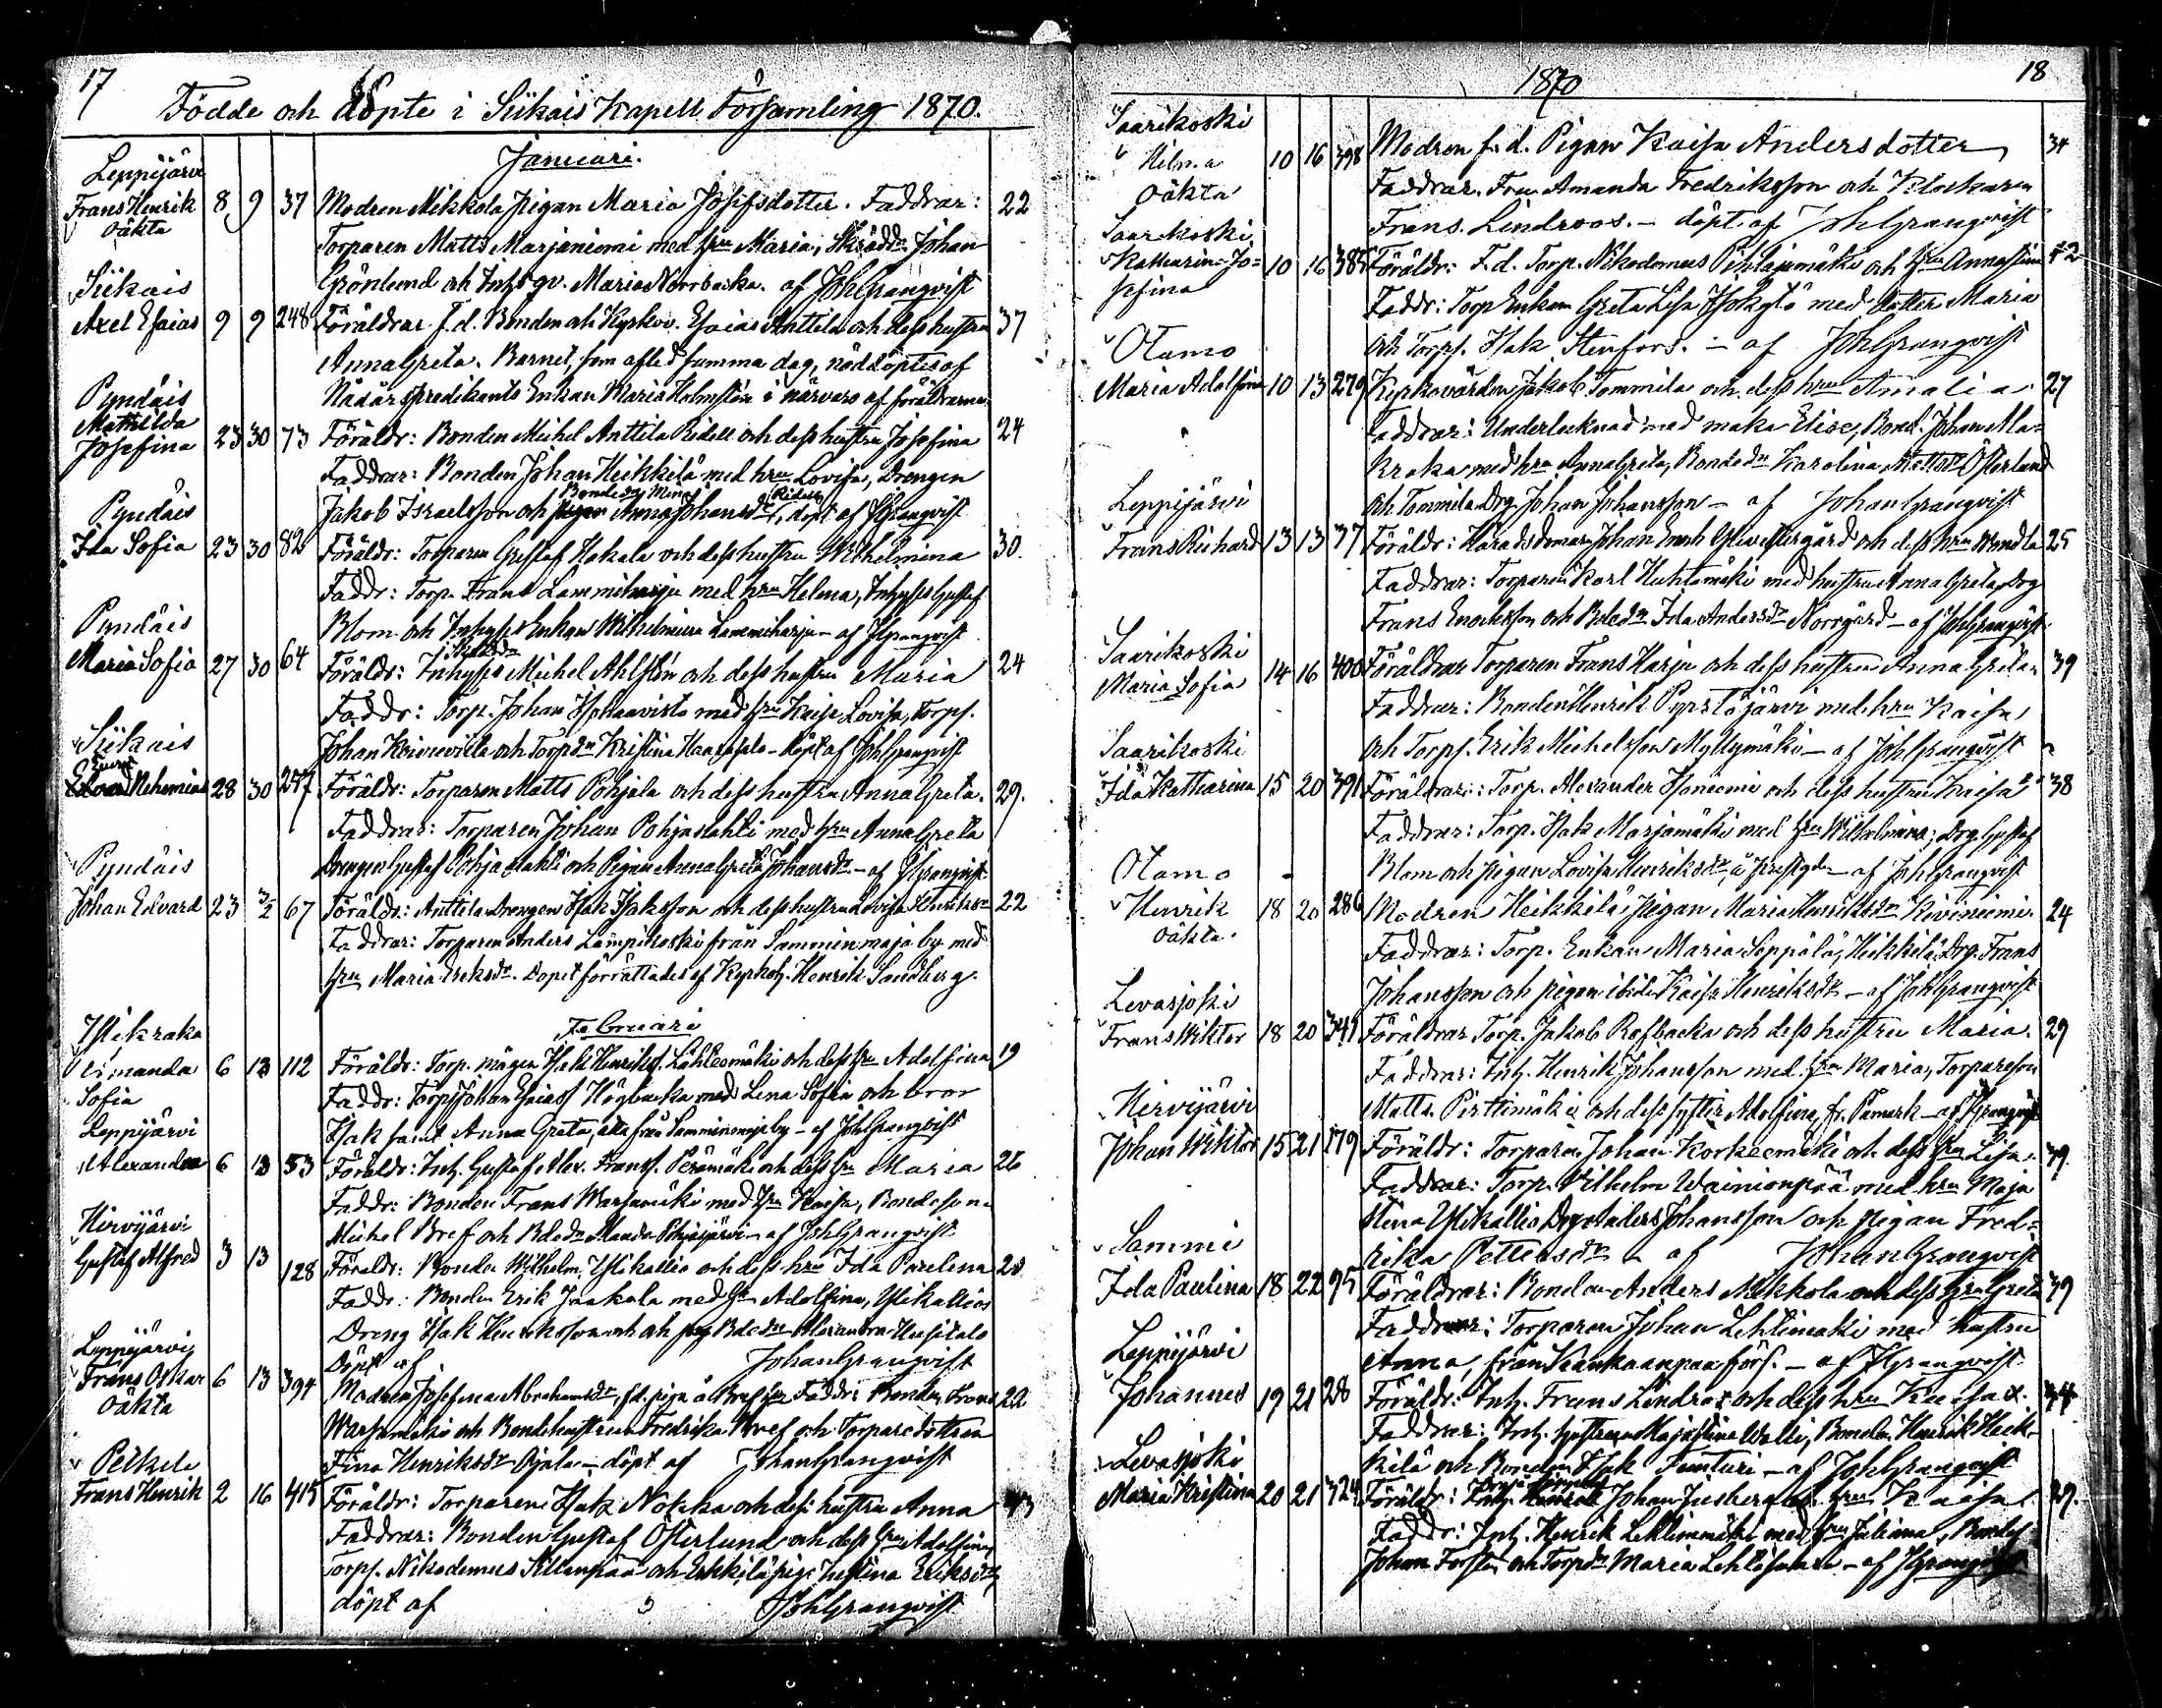 17
Födde och döpte i Siikais Kapell Församling 1870.
Januari.
Leppijärvi
Frans Henrik 8 9 37 Modren Mikkola pigan Maria Josefsdotter. Faddrar: 22
oäkta Torparen Matts Marjaniemi med hru Maria, Skrädd. Johan
Grönlund och Inhs gv. Maria Norrbacka. af JohGranqvist
Siikais
Axel Esaias 9 9 248 Föräldrar f.d. Bonden och Kyrkov. Esaias Anttila och dess hustru 37
Anna Greta. Barnet, som afled samma dag, nöddöptes af
Nådårspredikants Enkan Maria Holmstén i närvaro af föräldrarne.
Pyndäis
Mathilda
Josefina 23 30 73 Föräldr: Bonden Michel Anttila Ridell och dess hustru Josefina 24
Faddrar: Bonden Johan Heikkilä med hru Lovisa, Drengen
Bonded. Mina Ridell
Jakob Israelsson och Anna Johansdr, döpt af JGranqvist
Pyndäis
Ida Sofia 23 30 82 Föräldr: Torparen Gustaf Hakala och dess hustru Wilhelmina 30.
Faddr: Torp. Frans Lammiharju med hru Helena, Inhyses Gustaf
Blom och Inhyses Enkan Wilhelmina Lammiharju - af JGranqvist
Pyndäis
Maria Sofia 27 30 64 Föräldr: Inhyses Michel Ahlstén och dess hustru Maria 24
Faddr: Torp. Johan Isohaavisto med hru Kaisa Lovisa, Torps.
Johan och Torpdr Kristina - döpt af JohGranqvist
Siikais
Nehemias 28 30 257 Föräldr: Torparen Matts Pohjala och dess hustru Anna Greta. 29.
Faddrar: Torparen Johan Pohjaslahti med hru Anna Greta
Drengen Gustaf Pohjaslahti och Pigan Anna Greta Johansdr. - af JGranqvist
Pyndäis
Johan Edvard 23 3/2 67 Föräldr: Anttila Drengen Isak Isaksson och dess hustru Lovisa Henriksdr 22
Faddrar: Torparen Anders Lampikoski från Samminmaja by med
hru Maria Eriksdr. Dopet förrättades af Kyrkoh. Henrik Sandberg.
Februari
Ylikraka
Amanda 6 13 112 Föräldr: Torp. mågen Isak Henrikss. Lähteemäki och dess hru Adolfina 19
Sofia Faddr: Torps Johan Esaiass Högbacka med Lena Sofia och bror
Isak samt Anna Greta, alla från Samminmaja by - af JohGranqvist
Leppijärvi
Alexandra 6 13 53 Föräldr: Inh. Gustaf Alex. Franss. Perämäki och dess hru Maria 26
Faddr: Bonden Frans Warsamäki med hru Kaisa, Bondeson
Michel Bref och Bdedr Manda Pohjajärvi - af JohGranqvist
Hirvijärvi
Gustaf Alfred 3 13 128 Föräldr: Bonden Wilhelm Ylikallio och dess hru Ida Paulina 20
Faddr: Bonden Erik Jaakola med hru Adolfina, Ylikallios
Dreng Isak Henriksson och Bdedr Alexandra
Döpt af JohanGranqvist
Leppijärvi
Frans Oskar 6 13 394 Modren Josefina Abrahamsdr, f.d. piga å Bref. Faddr: Bonden Frans 22
oäkta Warsamäki och Bondehustrun Fredrika Bref och Torparedottren
Fina Henriksdr Ojala - döpt af JohanGranqvist
Peikele
Frans Henrik 2 16 415 Föräldr: Torparen Isak Nokka och dess hustru Anna 43
Faddrar: Bonden Gustaf Österlund och dess hru Adolfina,
Torps. Nikodemus Sillanpää och Erkkilä piga Justina Eriksdr,
döpt af JohGranqvist
1870 18
Saarikoski
Hilma 10 16 398 Modren f.d. Pigan Kaisa Andersdotter 34
oäkta Faddrar. Fru Amanda Fredriksson och Klockaren
Frans Lindroos. - döpt af JohGranqvist
Saarikoski
Katharina Jo= 10 16 385 Föräldr: F.d. Torp. Nikodemus Pihlajamäki och hru Anna Stina 42
sefina Faddr: Torp Enkan Greta Lisa Isokytö med dotter Maria
och Torps. Isak Stenfors. - af JohGranqvist
Otamo
Maria Adolfina 10 13 279 Kyrkovärden Jakob Tommila och dess hru Amalia 27
Faddrar: Undertecknad med maka Elise, Bond. Johan Ala=
kraka med hru Anna Greta, Bondedr Karolina Österlund
och Tommila Drg. Johan Johansson - af JohanGranqvist
Leppijärvi
Frans Richard 13 13 37 Föräldr: Häradsdomar Johan Enoch Yliwestergård och dess hru Wendla 25
Faddrar: Torparen Karl Huhtamäki med hustru Anna Greta, Drg
Frans Enoksson och Bdedr Ida Andersdr Norrgård - af JohGranqvist
Saarikoski
Maria Sofia 14 16 400 Föräldrar Torparen Frans Harju och dess hustru Anna Greta 39
Faddrar: Bonden Henrik Pyöröjärvi med hru Kaisa,
och Torps. Erik Michelsson Myllymäki - af JohGranqvist
Saarikoski
Ida Katharina 15 20 391 Föräldrar: Torp. Alexander Isoniemi och dess hustru Kaisa 38
Faddrar: Torp. Isak Marjamäki med hru Wilhelmina; Drg Gustaf
Blom och pigan Lovisa Henriksdr, å prestgdn - af JohGranqvist
Otamo
Henrik 18 20 286 Modren Heikkilä pigan Maria Henriksdr Kiviniemi 24
oäkta. Faddrar: Torp. Enkan Maria Seppälä, Heikkilä Drg. Frans
Johansson och pigan ibid. Kaisa Henriksdr - af JohGranqvist
Levasjoki
Frans Wiktor 18 20 341 Föräldrar Torp. Jakob Rosbacka och dess hustru Maria. 29
Faddrar: Inh. Henrik Johansson med hru Maria, Torpareson
Matts Pirttimäki och dess syster Adolfina, fr. Påmark - af JGranqvist
Hirvijärvi
Johan Wiktor 15 21 179 Föräldr: Torparen Johan Korkeemäki och dess hru Lisa 39.
Faddrar: Torp. Vilhelm Wainionpää med hru Maja
Stina Ylikallio Drg Anders Johansson och pigan Fred=
rika Pettersdr - af JohanGranqvist
Sammi
Ida Paulina 18 22 95 Föräldrar: Bonden Anders Mikkola och dess hru Greta 39
Faddrar: Torparen Johan Lehtimäki med hustru
Anna, från Kankaanpää förs. - af JGranqvist
Leppijärvi
Johannes 19 21 28 Föräldr: Inh. Frans Lindroos och dess hru Kaisa
Faddrar: Inh. hustrun Maja Stina Walli, Bonden Henrik Heik-
kilä och Bonden Isak Junturi - af JohGranqvist
Levasjoki
Maria Kristina 20 21 324 Föräldr: Johan Jusberg och hru Kaisa 29.
Faddr: Inh. Henrik Lehtimäki med hru Juliana, Bondes.
Johan Forsten och Torpdr Maria Lehtisalo - af JGranqvist